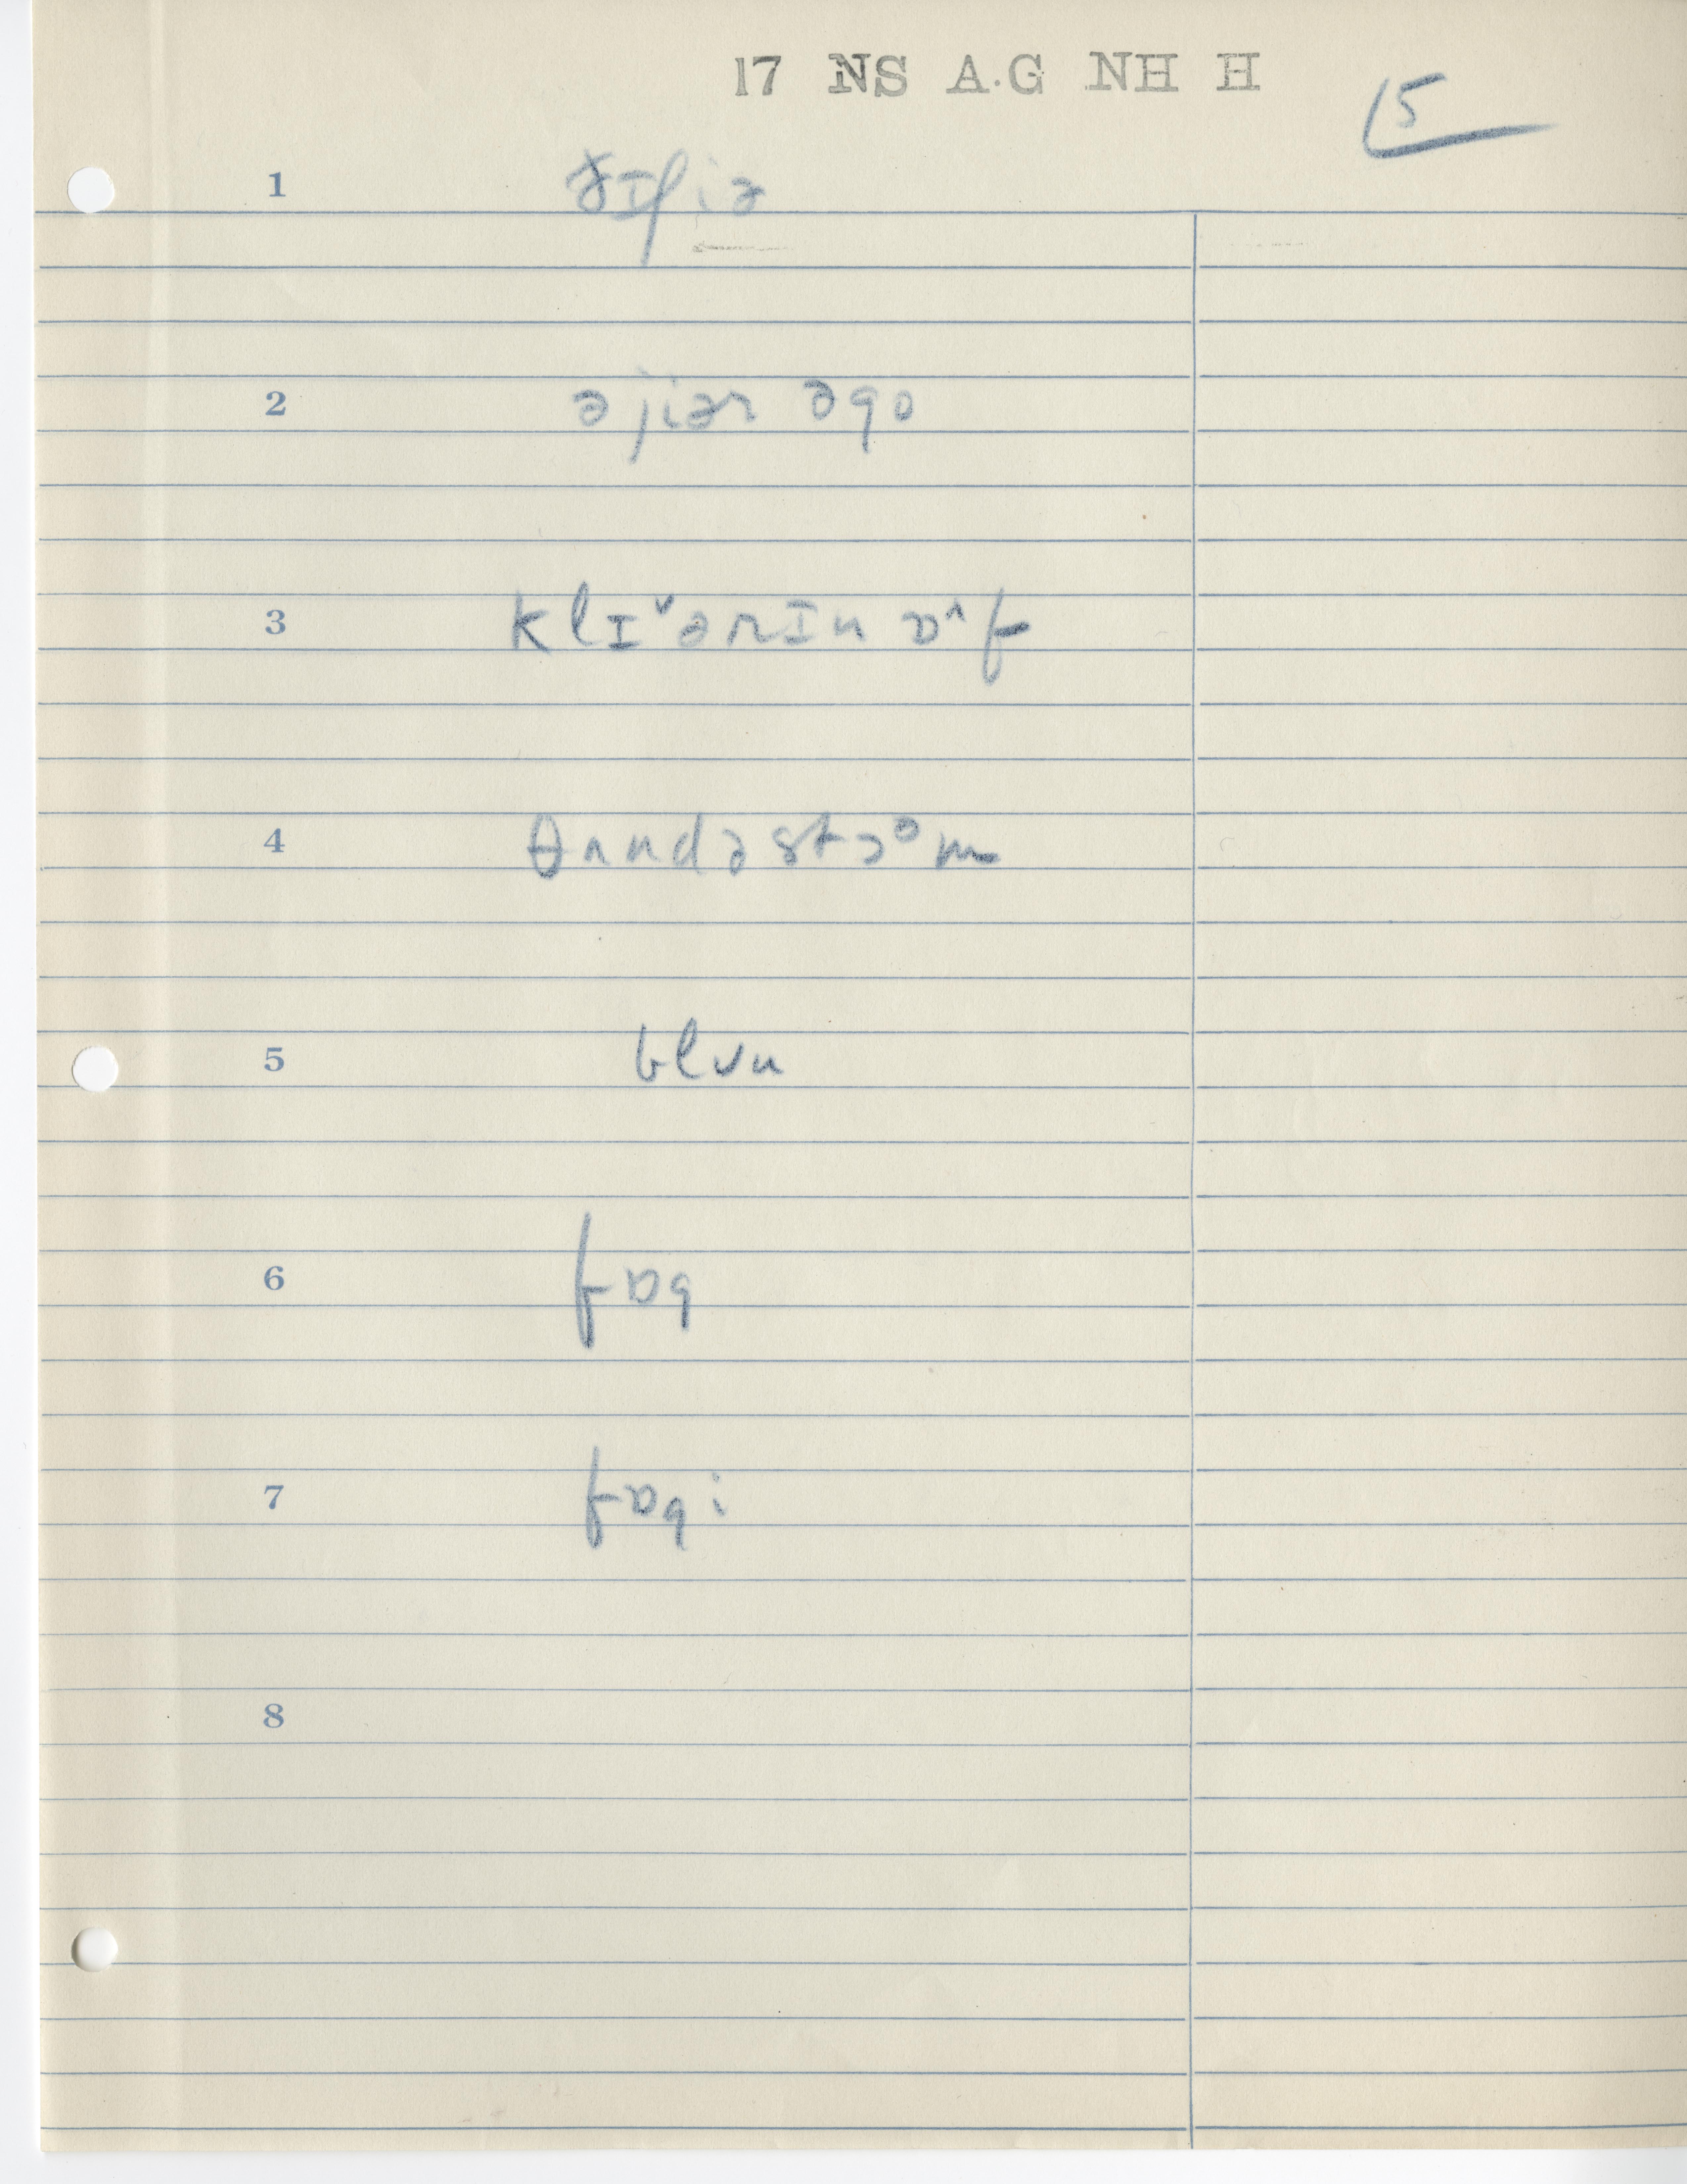 17 NS A.G NH H
15
1
2 ə jiər əgo
3 klɪˇərɪn ɒ^f
4 θʌndəstɔᵊm
5 blʊu
6 fɒg
7 fɒgi
8